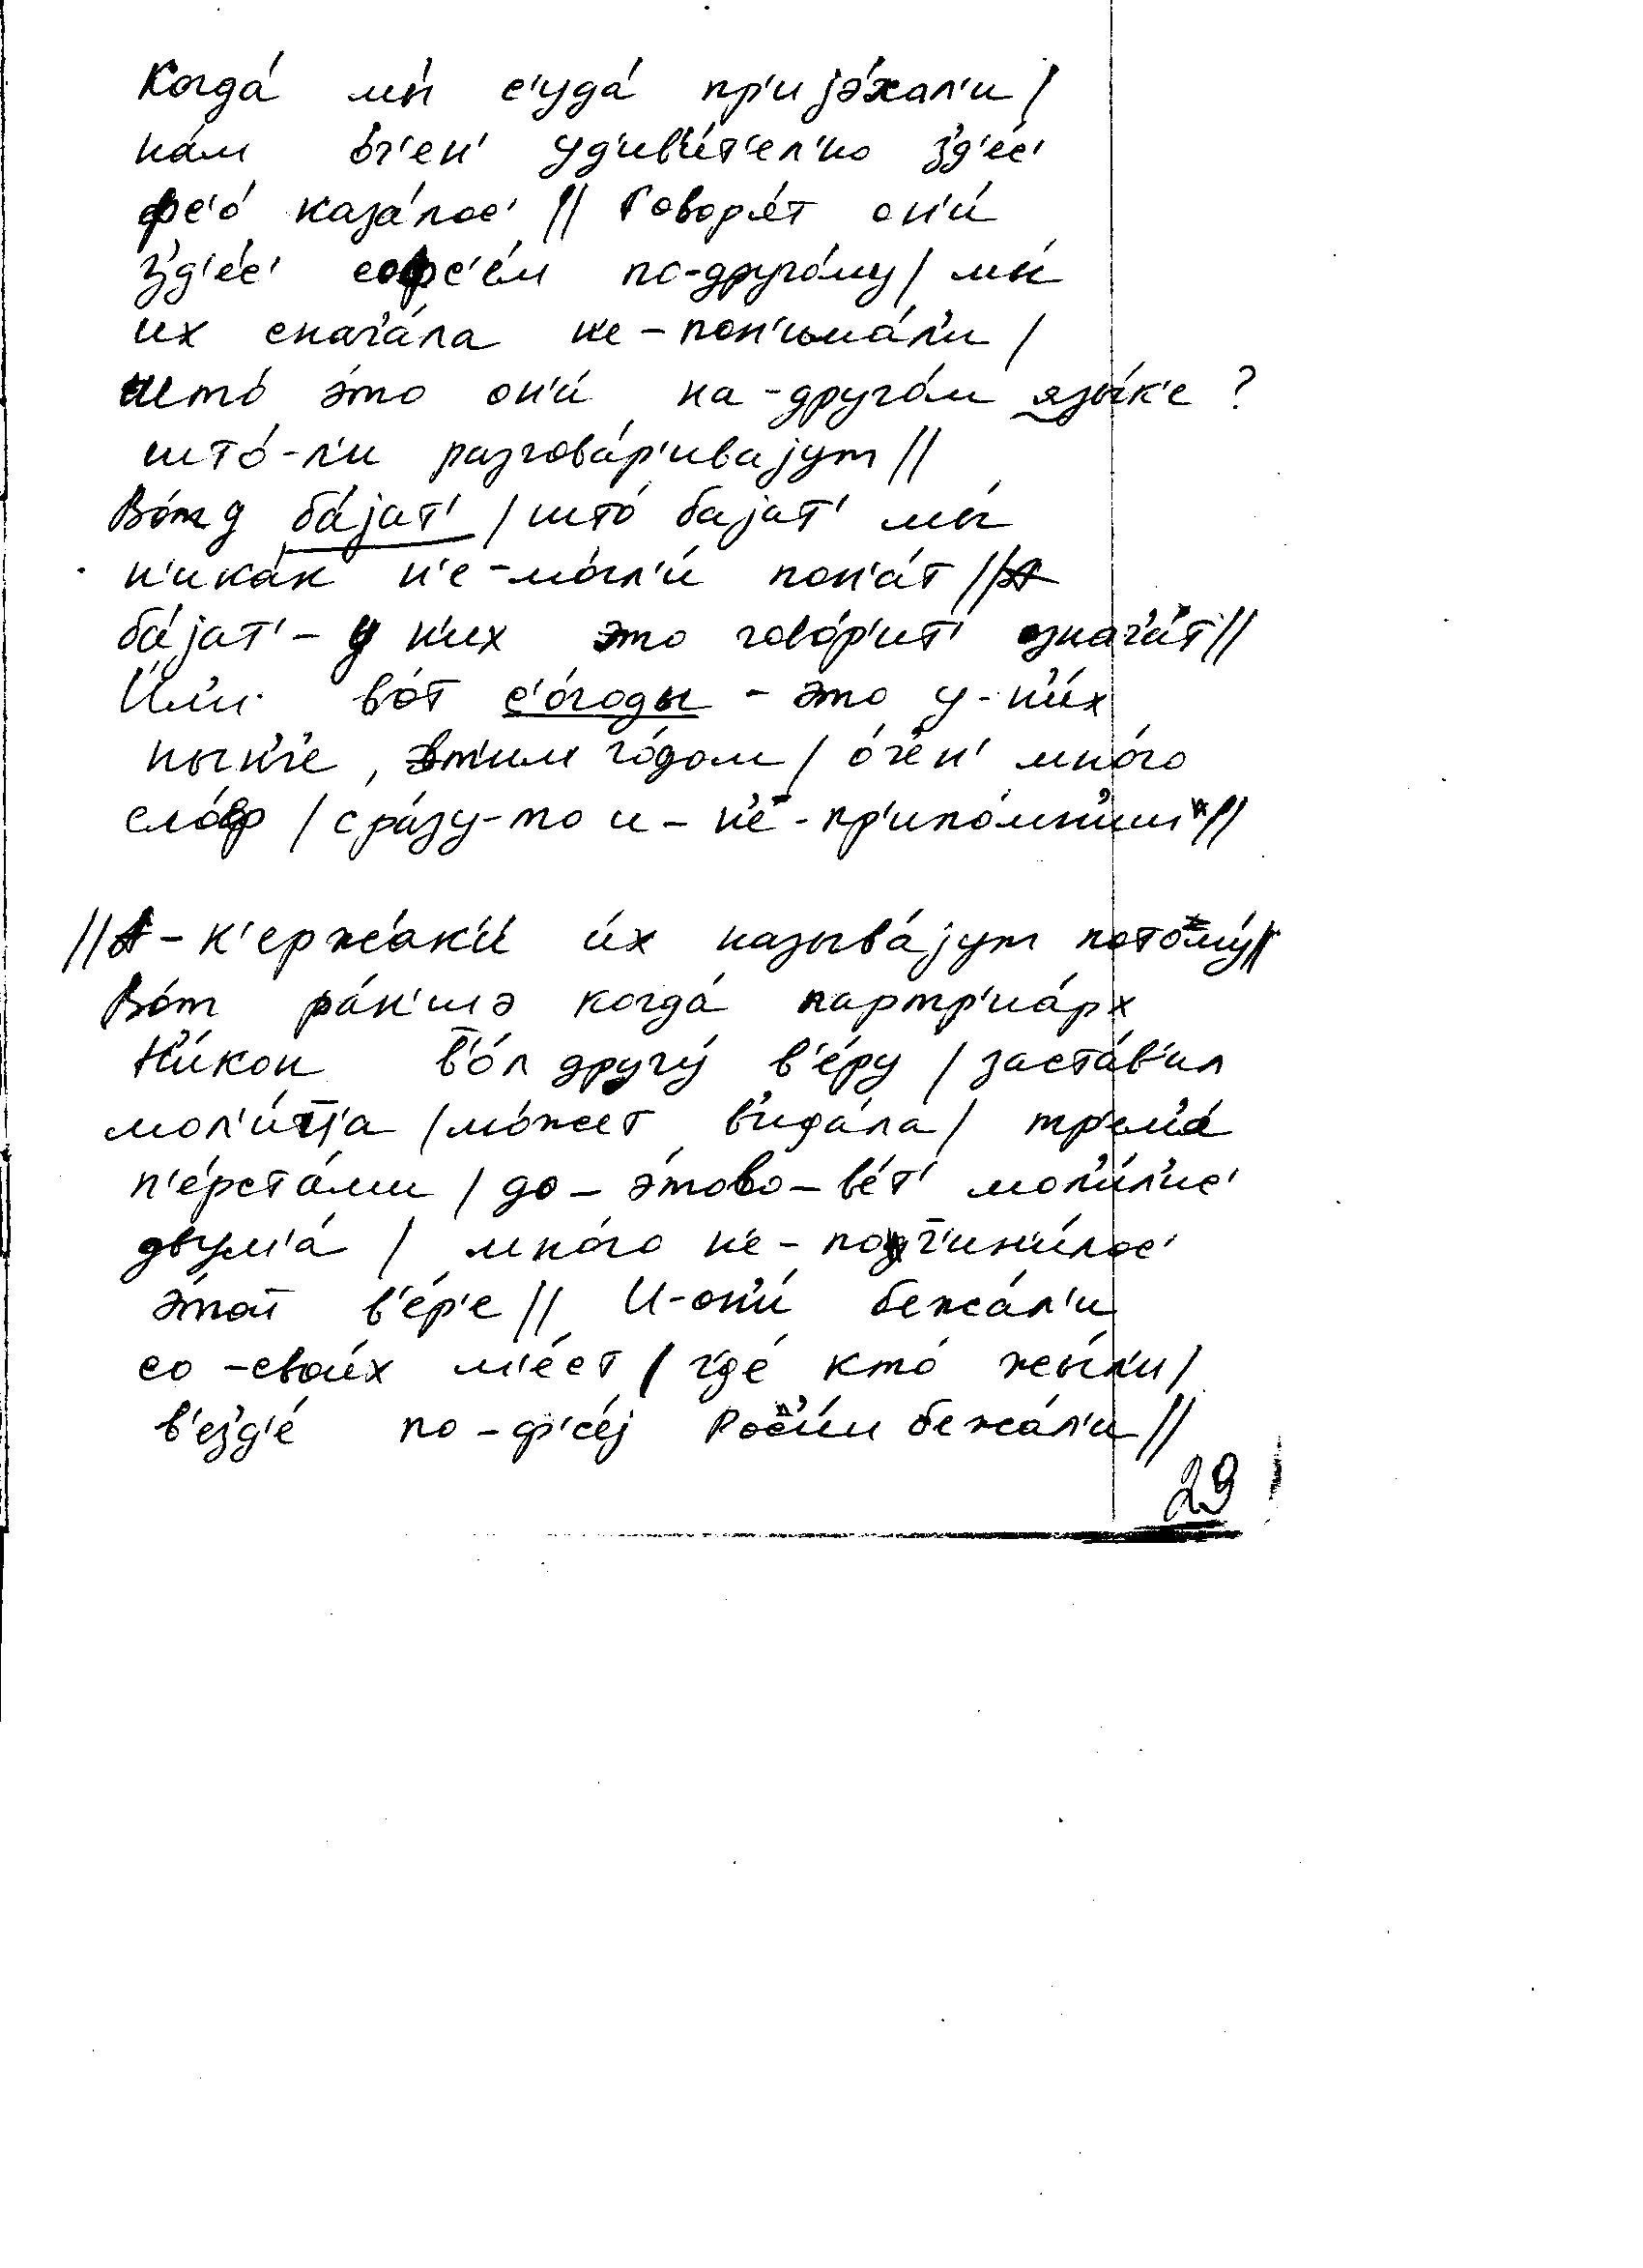 Когда́ мы́ с'уда́ пр'иjэ́хал'и /
на́м о́ч'ен' уд'ив'и́т'ел'но з'д'е́с'
фс'о́ каза́лос' // Говор'а́т он'и́
з'д'е́с' софс'е́м по-друго́му / мы́
их снач'а́ла н'е-пон'има́л'и /
што́ э́то он'и́ на-друго́м язы́к'е ?
што́-л'и разгова́р'иваjут //
Во́т ба́jат' / што́ баjат' мы́
н'ика́к н'е-могл'и́ пон'а́т //
ба́jат' - у н'их это говор'ит' означ'а́т //
И́л'и во́т с'о́годы - это у-н'и́х
нын'ч'е, эт'им го́дом / о́ч'ен' мно́го
сло́ф / сра́зу-то и-н'е-пр'ипо́мн'иш //
// А-к'ержак'и́ и́х называ́jут потому́ //
Во́т ра́н'шэ когда́ партр'иа́рх
Н'и́кон в'о́л другу́ в'е́ру / заста́в'ил
мол'и́тца / мо́жет в'ида́ла / тр'ем'а́
п'е́рста́ми / до-э́тово-ве́т' мол'и́л'ис'
двум'а́ / мно́го н'е-подч'ин'и́лос'
э́той в'е́р'е // И-он'и́ бежа́л'и
со-свои́х м'е́ст / гд'е́ кто́ жы́л'и /
в'езд'е́ по-фс'е́j Рос'и́и бежа́л'и //
29